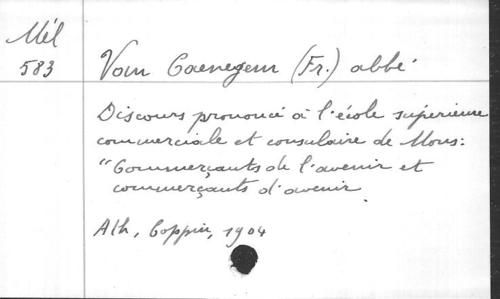 Mél
583
Van Caenegem (Fr.) abbé
Discours prononcé à l'école supérieure
commerciale et consulaire de Mons:
"Commerçants de l'avenir et
commerçants d'avenir.
Ath, Coppin, 1904